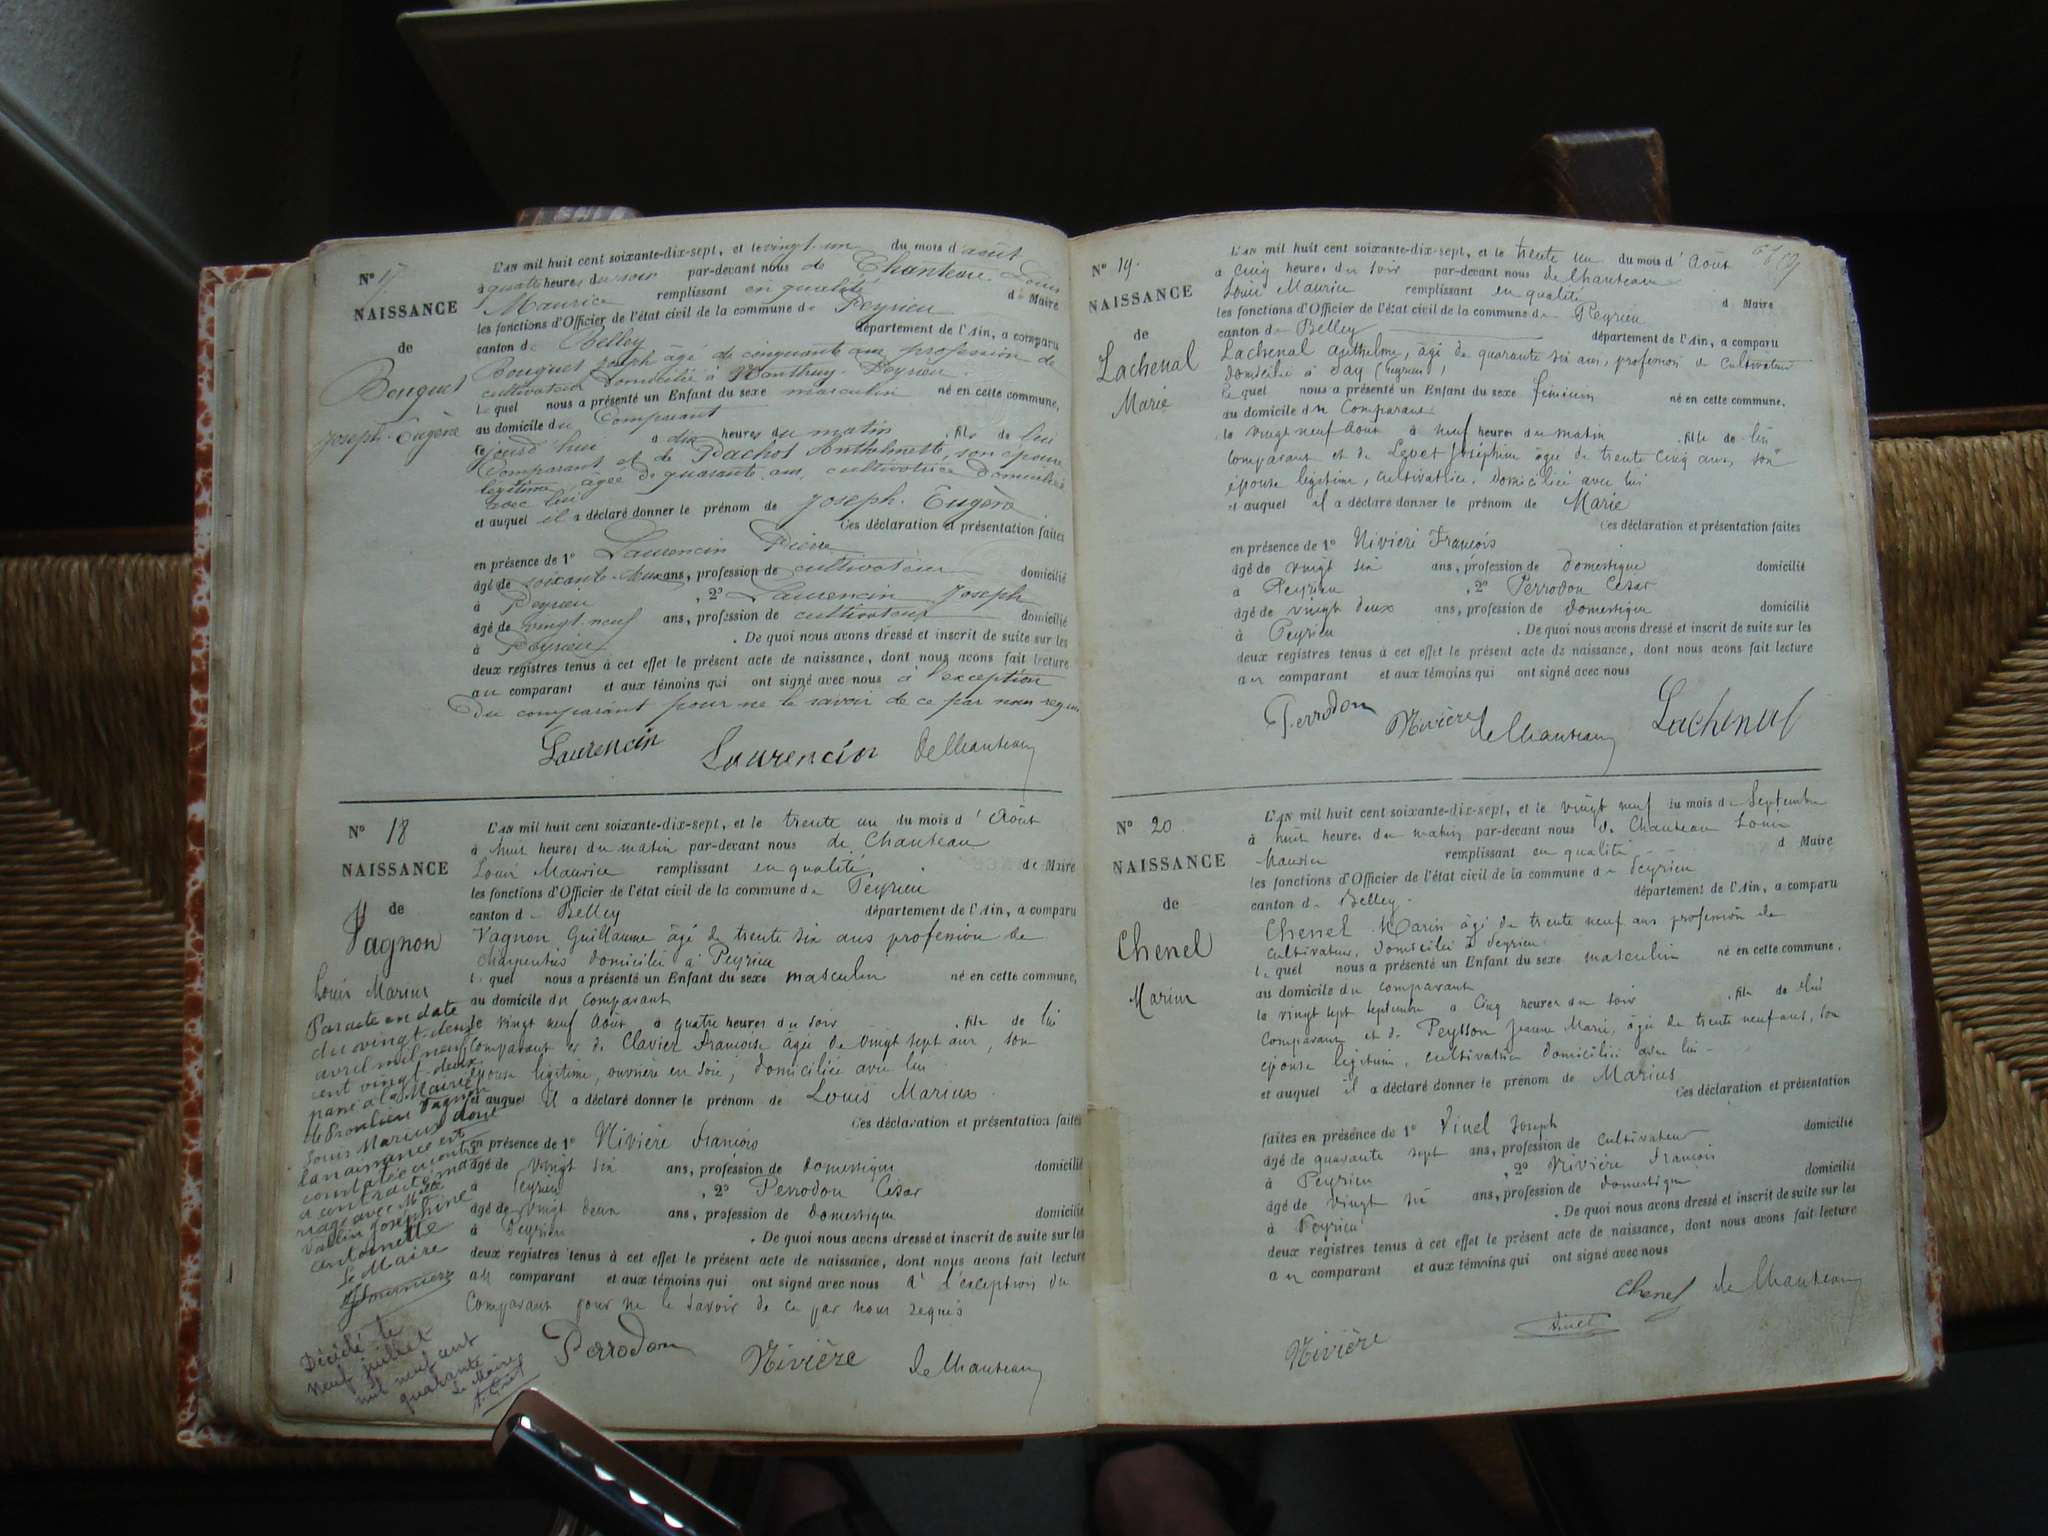 N° 17
NAISSANCE
de
Bouquet
Joseph-Eugène
L'AN mil huit cent soixante-dix-sept, et le vingt-un du mois d'août
à quatre heures du soir par-devant nous de Chanteau Louis
Maurice remplissant en qualité de Maire
les fonctions d'Officier de l'état civil de la commune de Peyrieu
canton de Belley département de l'Ain, a comparu
Bouquet Joseph âgé de cinquante ans profession de
cultivateur domicilié à Peyrieu.
lequel nous a présenté un Enfant du sexe masculin né en cette commune,
au domicile du Comparant
cejourd'hui à dix heures du matin, fils de lui
comparant et de Pachot Anthelmette, son épouse
légitime, âgée de quarante ans, cultivatrice domiciliée
avec lui
et auquel il a déclaré donner le prénom de Joseph-Eugène
Ces déclaration et présentation faites
en présence de 1° Laurencin Pierre
âgé de soixante-deux ans, profession de cultivateur domicilié
à Peyrieu, 2° Laurencin Joseph
âgé de vingt-neuf ans, profession de cultivateur domicilié
à Peyrieu. De quoi nous avons dressé et inscrit de suite sur les
deux registres tenus à cet effet le présent acte de naissance, dont nous avons fait lecture
au comparant et aux témoins qui ont signé avec nous à l'exception
du comparant pour ne le savoir de ce par nous requis
Laurencin Laurencin de Chanteau
N° 18
NAISSANCE
de
Vagnon
Louis Marius
Par acte en date
du vingt-deux
avril mil neuf
cent vingt-deux
passé à la Mairie
de Vagnon
Louis Marius dont
la naissance est
constatée ci-contre
a contracté ma-
riage avec Mlle
Vallin Joséphine
Antoinette
Le Maire
Décédé le
neuf juillet
mil neuf cent
quarante
Le Maire
L'AN mil huit cent soixante-dix-sept, et le trente un du mois d'Août
à huit heures du matin par-devant nous de Chanteau
Louis Maurice remplissant en qualité de Maire
les fonctions d'Officier de l'état civil de la commune de Peyrieu
canton de Belley département de l'Ain, a comparu
Vagnon Guillaume âgé de trente six ans profession de
charpentier domicilié à Peyrieu
lequel nous a présenté un Enfant du sexe masculin né en cette commune,
au domicile du comparant
le vingt neuf Août à quatre heures du soir, fils de lui
comparant et de Clavier Françoise âgée de vingt sept ans, son
épouse légitime, ouvrière en soie, domiciliée avec lui
et auquel il a déclaré donner le prénom de Louis Marius.
Ces déclaration et présentation faites
en présence de 1° Nivière François
âgé de vingt six ans, profession de domestique domicilié
à Peyrieu, 2° Perrodon César
âgé de vingt deux ans, profession de domestique domicilié
à Peyrieu. De quoi nous avons dressé et inscrit de suite sur les
deux registres tenus à cet effet le présent acte de naissance, dont nous avons fait lecture
au comparant et aux témoins qui ont signé avec nous à l'exception du
Comparant pour ne le savoir de ce par nous requis
Perrodon Nivière de Chanteau
N° 19.
NAISSANCE
de
Lachenal
Marie
L'AN mil huit cent soixante-dix-sept, et le trente un du mois d'Août
à cinq heures du soir par-devant nous de Chanteau
Louis Maurice remplissant en qualité d Maire
les fonctions d'Officier de l'état civil de la commune de Peyrieu
canton de Belley département de l'Ain, a comparu
Lachenal Anthelme, âgé de quarante six ans, profession de Cultivateur
domicilié à (Peyrieu),
lequel nous a présenté un Enfant du sexe féminin né en cette commune,
au domicile du Comparant
le vingt neuf Août à neuf heures du matin, fille de lui
comparant et de Levet Joséphine âgée de trente cinq ans, son
épouse légitime, cultivatrice, domiciliée avec lui
et auquel il a déclaré donner le prénom de Marie
Ces déclaration et présentation faites
en présence de 1° Nivière François
âgé de vingt six ans, profession de domestique domicilié
à Peyrieu, 2° Perrodon César
âgé de vingt deux ans, profession de domestique domicilié
à Peyrieu. De quoi nous avons dressé et inscrit de suite sur les
deux registres tenus à cet effet le présent acte de naissance, dont nous avons fait lecture
au comparant et aux témoins qui ont signé avec nous
Perrodon Nivière de Chanteau Lachenal
N° 20
NAISSANCE
de
Chenel
Marius
L'AN mil huit cent soixante-dix-sept, et le vingt neuf du mois de Septembre
à huit heures du matin par-devant nous de Chanteau Louis
Maurice remplissant en qualité d Maire
les fonctions d'Officier de l'état civil de la commune de Peyrieu
canton de Belley. département de l'Ain, a comparu
Chenel Marin âgé de trente neuf ans profession de
cultivateur, domicilié à Peyrieu
lequel nous a présenté un Enfant du sexe masculin né en cette commune,
au domicile du comparant
le vingt sept septembre à cinq heures du soir, fils de lui
comparant et de Peysson Jeanne Marie, âgée de trente neuf ans, son
épouse légitime, cultivatrice domiciliée avec lui
et auquel il a déclaré donner le prénom de Marius
Ces déclaration et présentation
faites en présence de 1° Vinel Joseph
âgé de quarante sept ans, profession de Cultivateur domicilié
à Peyrieu, 2° Nivière François
âgé de vingt six ans, profession de domestique domicilié
à Peyrieu. De quoi nous avons dressé et inscrit de suite sur les
deux registres tenus à cet effet le présent acte de naissance, dont nous avons fait lecture
au comparant et aux témoins qui ont signé avec nous
Chenel de Chanteau
Vinel
Nivière